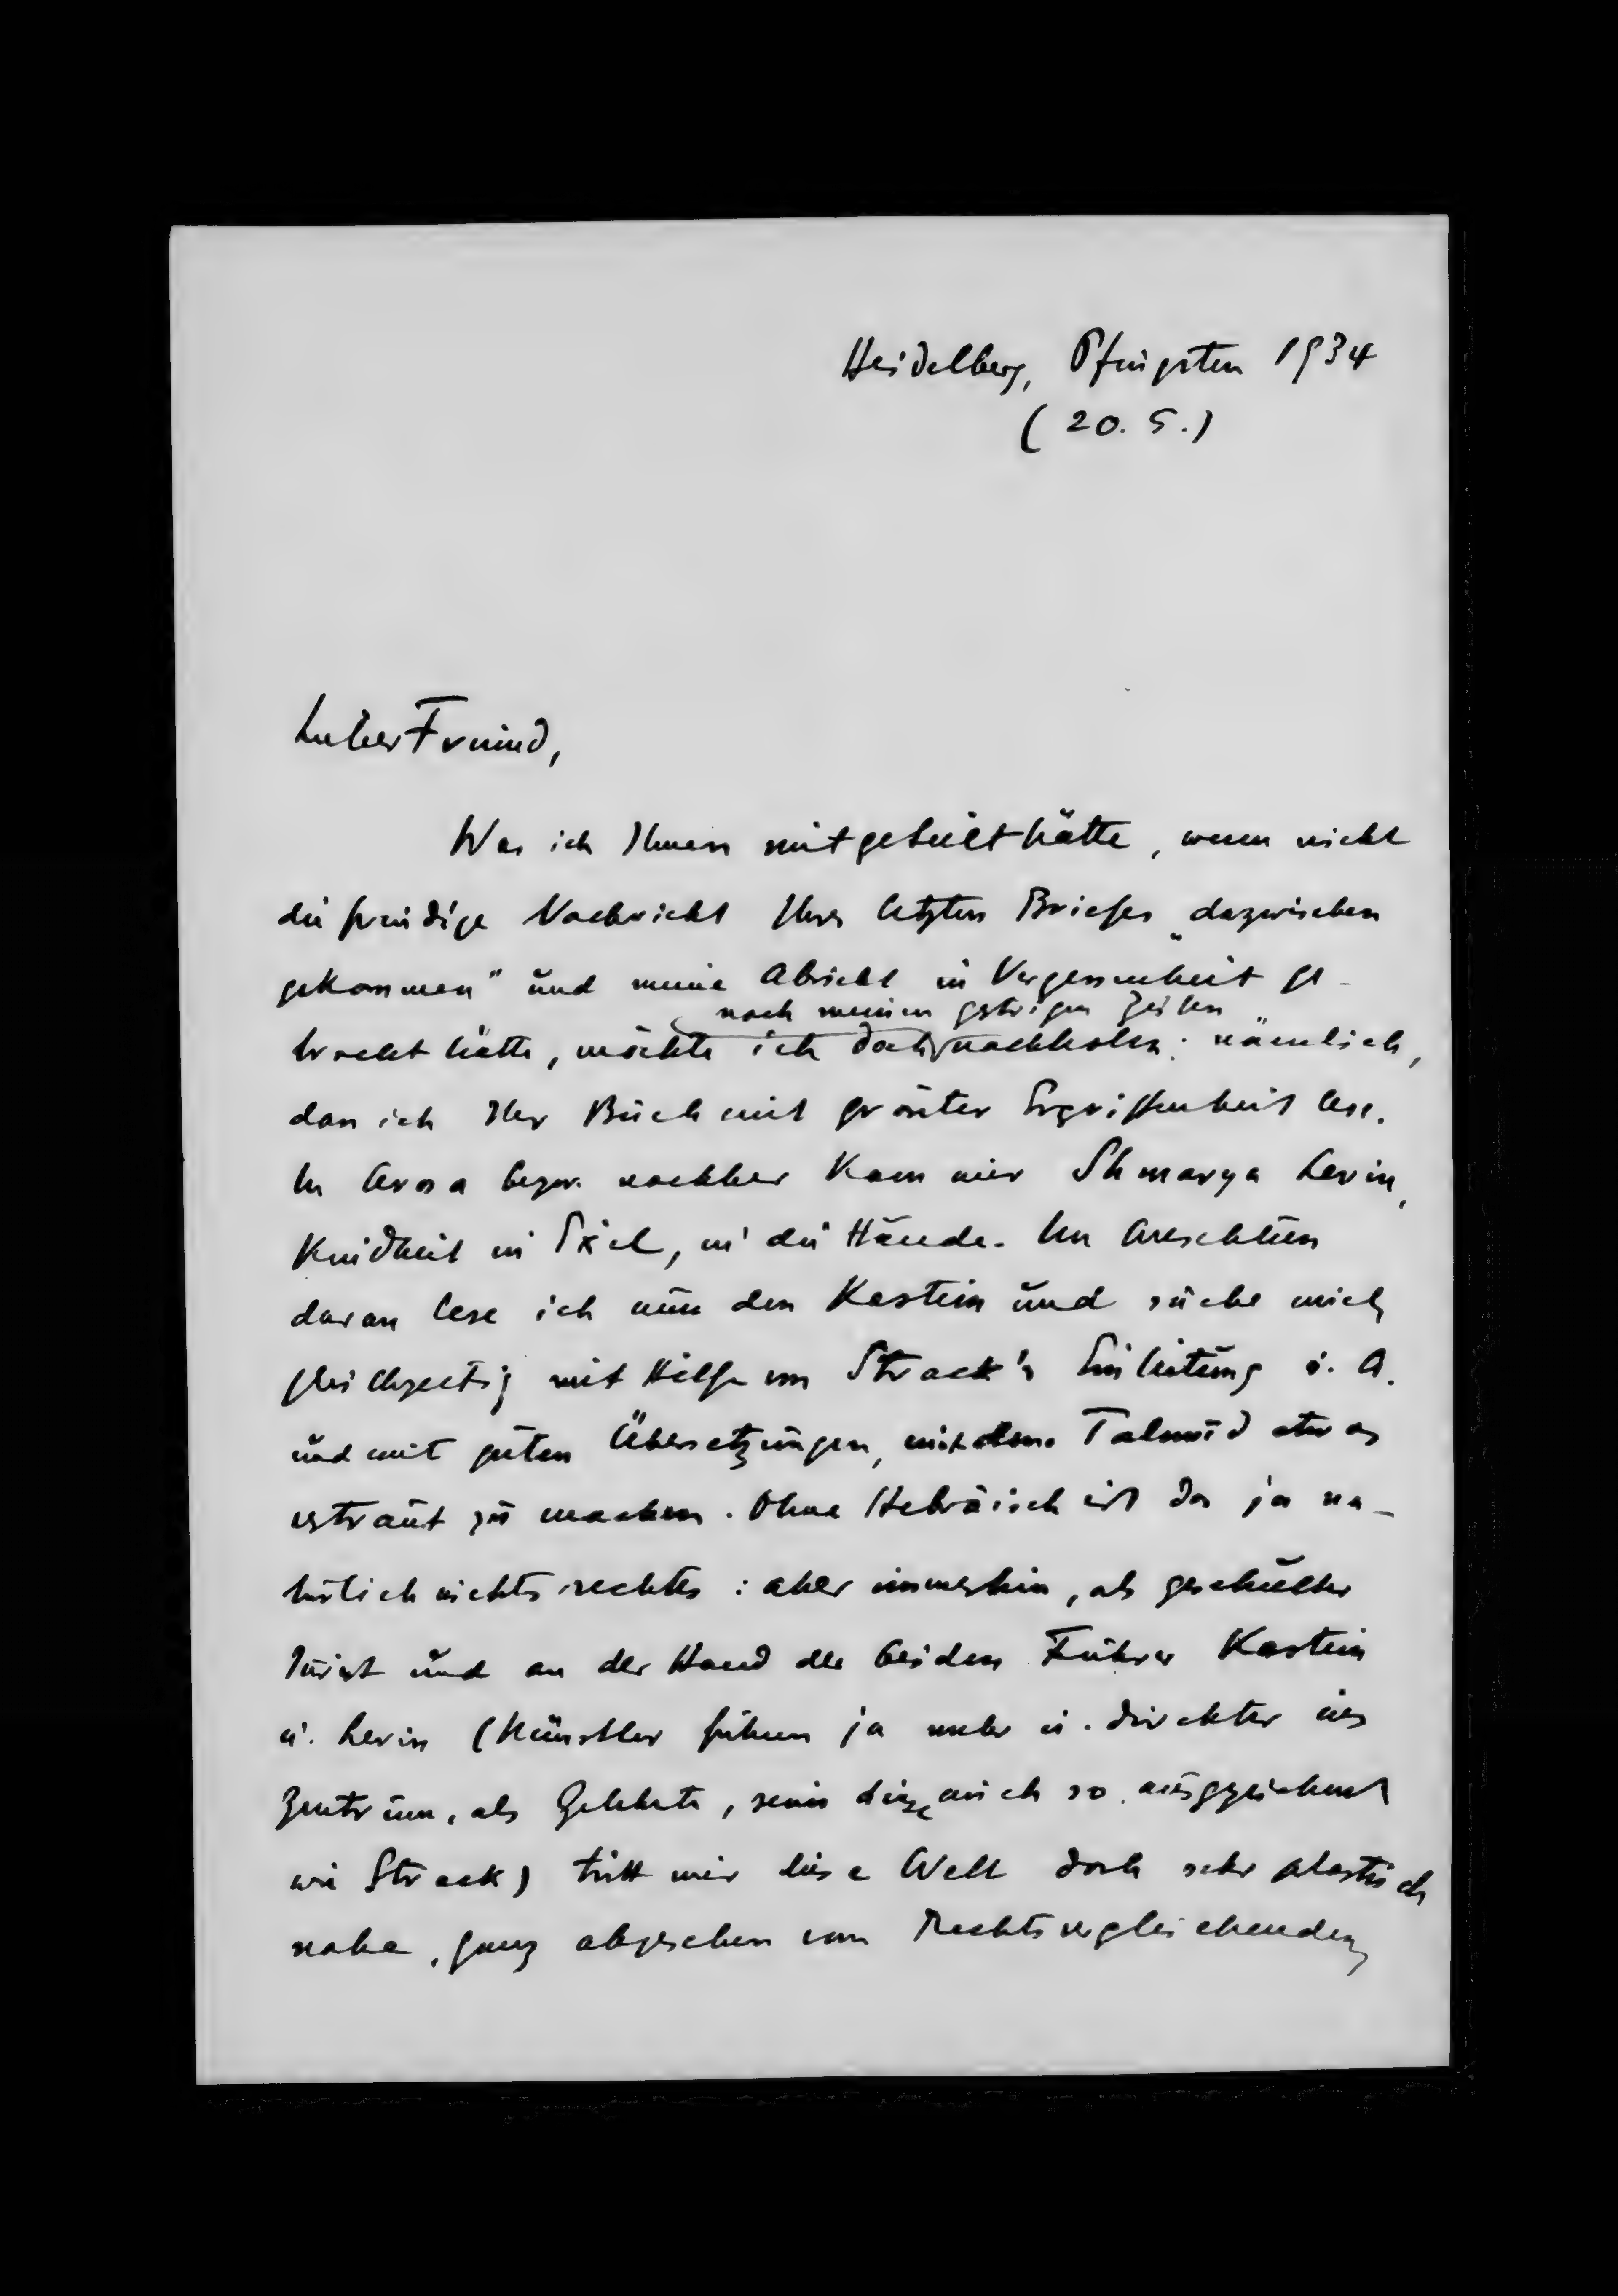 Heidelberg, Pfingsten 1934
(20. 5.)
Lieber Freund,
Was ich Ihnen mitgeteilt hätte, wenn nicht
die freudige Nachricht Ihres letzten Briefes „dazwischen
gekommen" und meine Absicht in Vergessenheit ge-
nach meinen gestrigen Zeilen
bracht hätte, möchte ich doch nachholen: nämlich,
dass ich Ihr Buch mit grösster Ergriffenheit lese.
In Arosa bezw. nachher kam mir Shmarya Levin,
Kindheit im Exil, in die Hände. Im Anschluss
daran lese ich nun den Kastein und suche mich
gleichzeitig mit Hilfe von Strack's Einleitung u. A.
und mit guten Übersetzungen, mit dem Talmud etwas
vertraut zu machen. Ohne Hebräisch ist das ja na-
türlich nichts rechtes: aber immerhin, als geschulter
Jurist und an der Hand der beiden Führer Kastein
u. Levin (Künstler führen ja mehr u. direkter ins
Zentrum, als Gelehrte, seien diese auch so ausgezeichnet
wie Strack) tritt mir diese Welt doch sehr plastisch
nahe, ganz abgesehen vom Rechtsvergleichenden